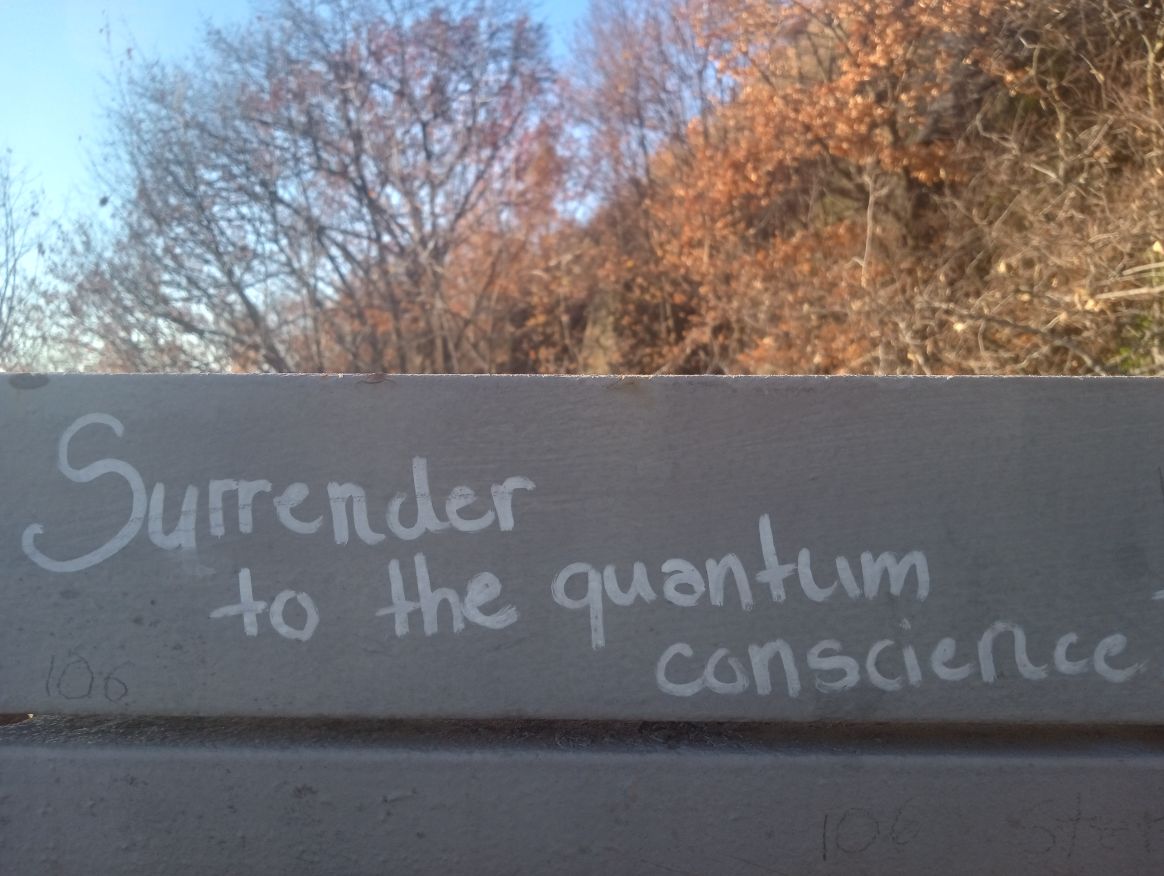 Surrender
to the quantum
conscience
106
106